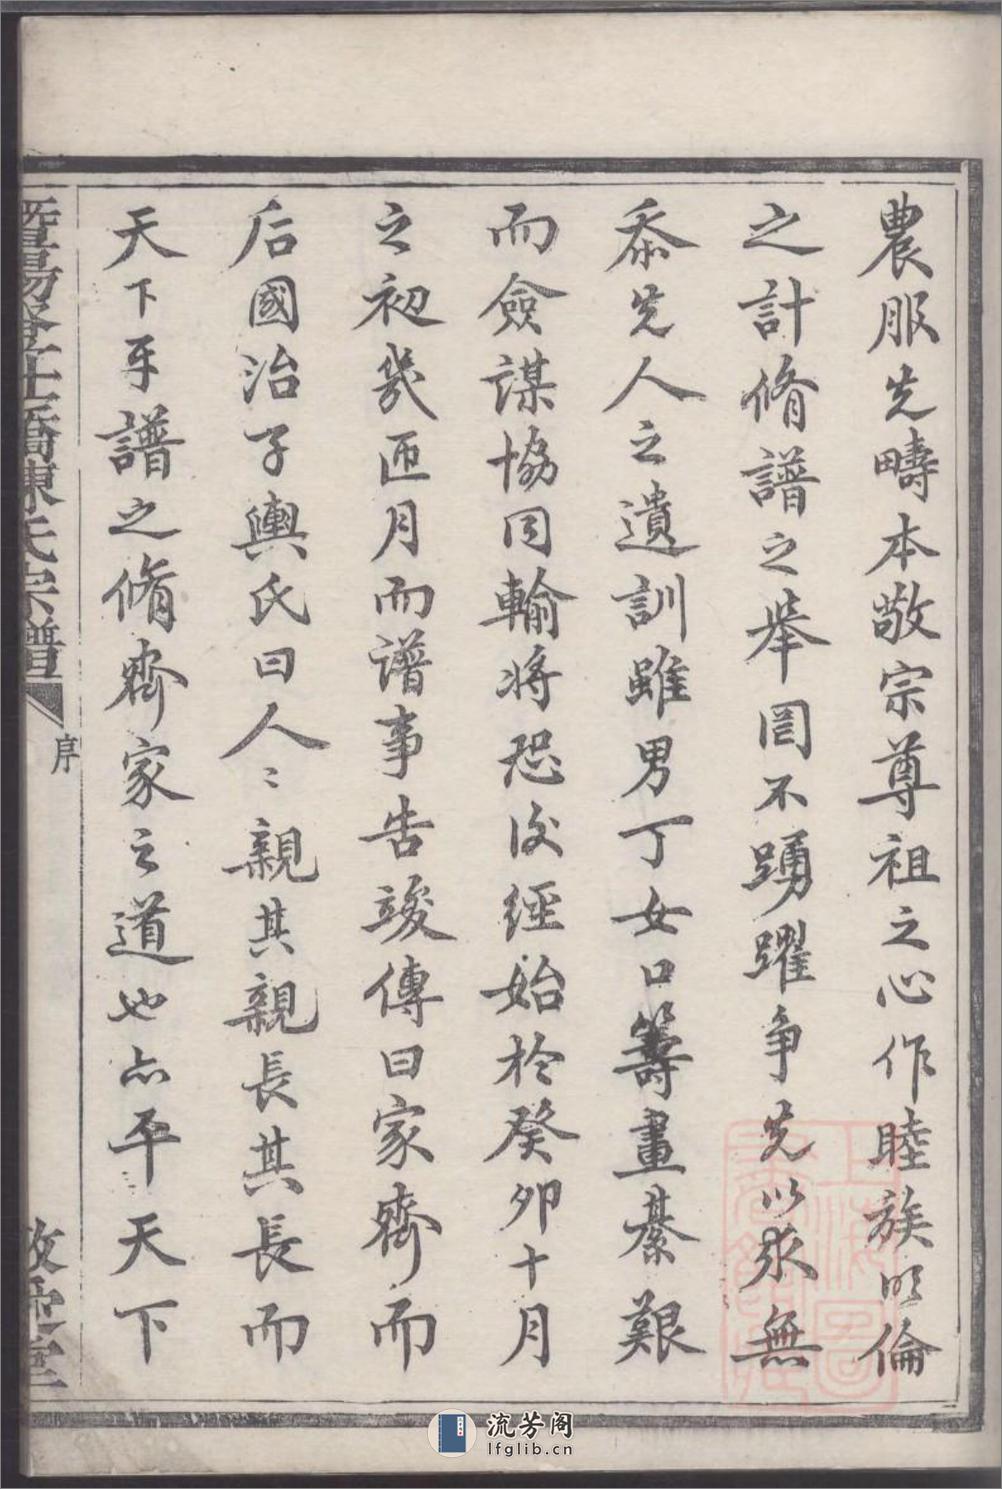 農服先疇本敬宗尊祖之心作睦族明倫
之計脩譜之舉罔不踴躍争先以求無
忝先人之遺訓雖男丁女口籌畫綦艱
而僉謀協同輸將恐後經始於癸卯十月
之初幾匝月而譜事告竣傳曰家齊而
后國治子輿氏曰人〻親其親長其長而
天下平譜之脩齊家之道也亦平天下
暨陽 店橋陳氏宗譜
序
流芳阁
lfglib.cn